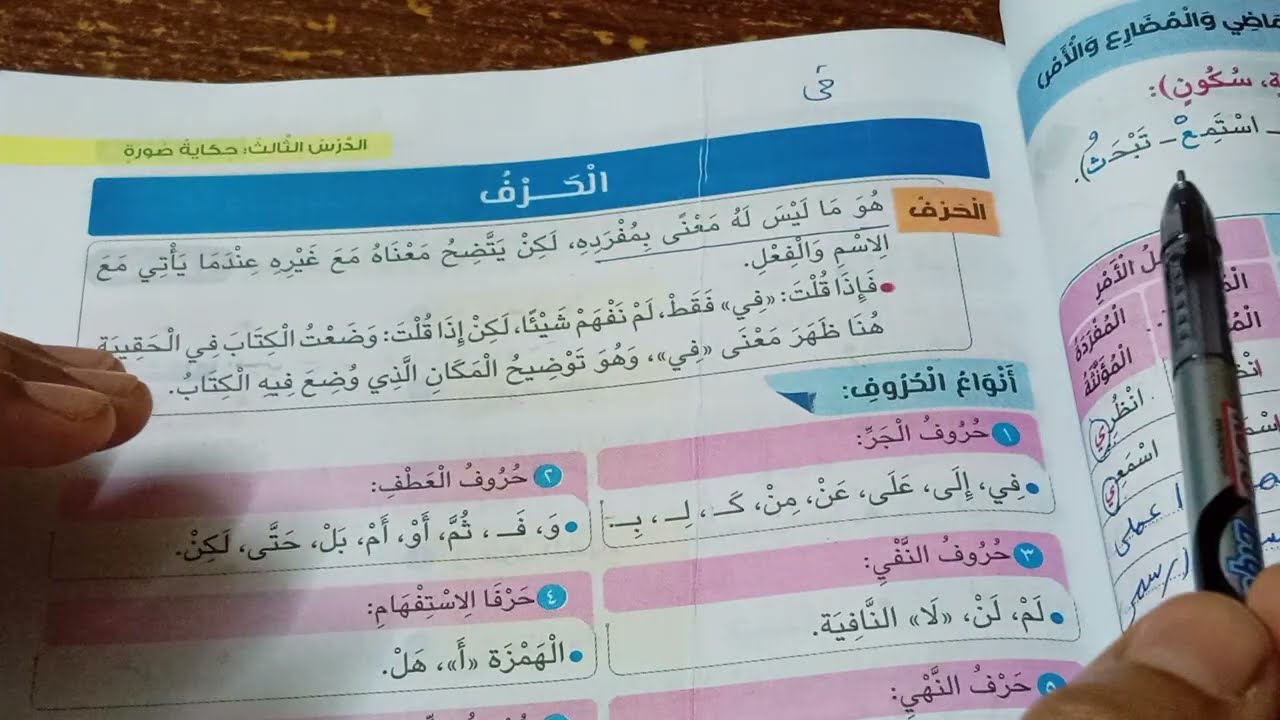 في
الدَّرْسُ الثَّالِثُ: حِكَايَةُ صُورَةٍ
الْحَـــرْفُ
الْحَرْفُ هُوَ مَا لَيْسَ لَهُ مَعْنًى بِمُفْرَدِهِ، لَكِنْ يَتَّضِحُ مَعْنَاهُ مَعَ غَيْرِهِ عِنْدَمَا يَأْتِي مَعَ
الِاسْمِ وَالْفِعْلِ.
• فَإِذَا قُلْتَ: «فِي» فَقَطْ، لَمْ نَفْهَمْ شَيْئًا، لَكِنْ إِذَا قُلْتَ: وَضَعْتُ الْكِتَابَ فِي الْحَقِيبَةِ
هُنَا ظَهَرَ مَعْنَى «فِي»، وَهُوَ تَوْضِيحُ الْمَكَانِ الَّذِي وُضِعَ فِيهِ الْكِتَابُ.
أَنْوَاعُ الْحُرُوفِ:
١ حُرُوفُ الْجَرِّ:
• فِي، إِلَى، عَلَى، عَنْ، مِنْ، كَـ، لِـ، بِـ.
٢ حُرُوفُ الْعَطْفِ:
• وَ، فَـ، ثُمَّ، أَوْ، أَمْ، بَلْ، حَتَّى، لَكِنْ.
٣ حُرُوفُ النَّفْيِ:
• لَمْ، لَنْ، «لَا» النَّافِيَة.
٤ حَرْفَا الِاسْتِفْهَامِ:
• الْهَمْزَة «أَ»، هَلْ.
٥ حَرْفُ النَّهْيِ:
وَالْمُضَارِع وَالْأَمْر)
سُكُونٍ):
ـ اسْتَمِعْ ـ تَبْحَثُ).
الْأَمْرِ
الْمُفْرَدَةُ
الْمُؤَنَّثَةُ
انْظُرِي
اسْمَعِي